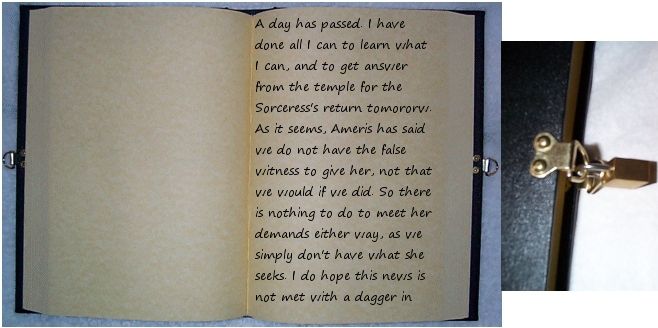 A day has passed. I have
done all I can to learn what
I can, and to get answer
from the temple for the
Sorceress's return tomororw.
As it seems, Ameris has said
we do not have the false
witness to give her, not that
we would if we did. So there
is nothing to do to meet her
demands either way, as we
simply don't have what she
seeks. I do hope this news is
not met with a dagger in